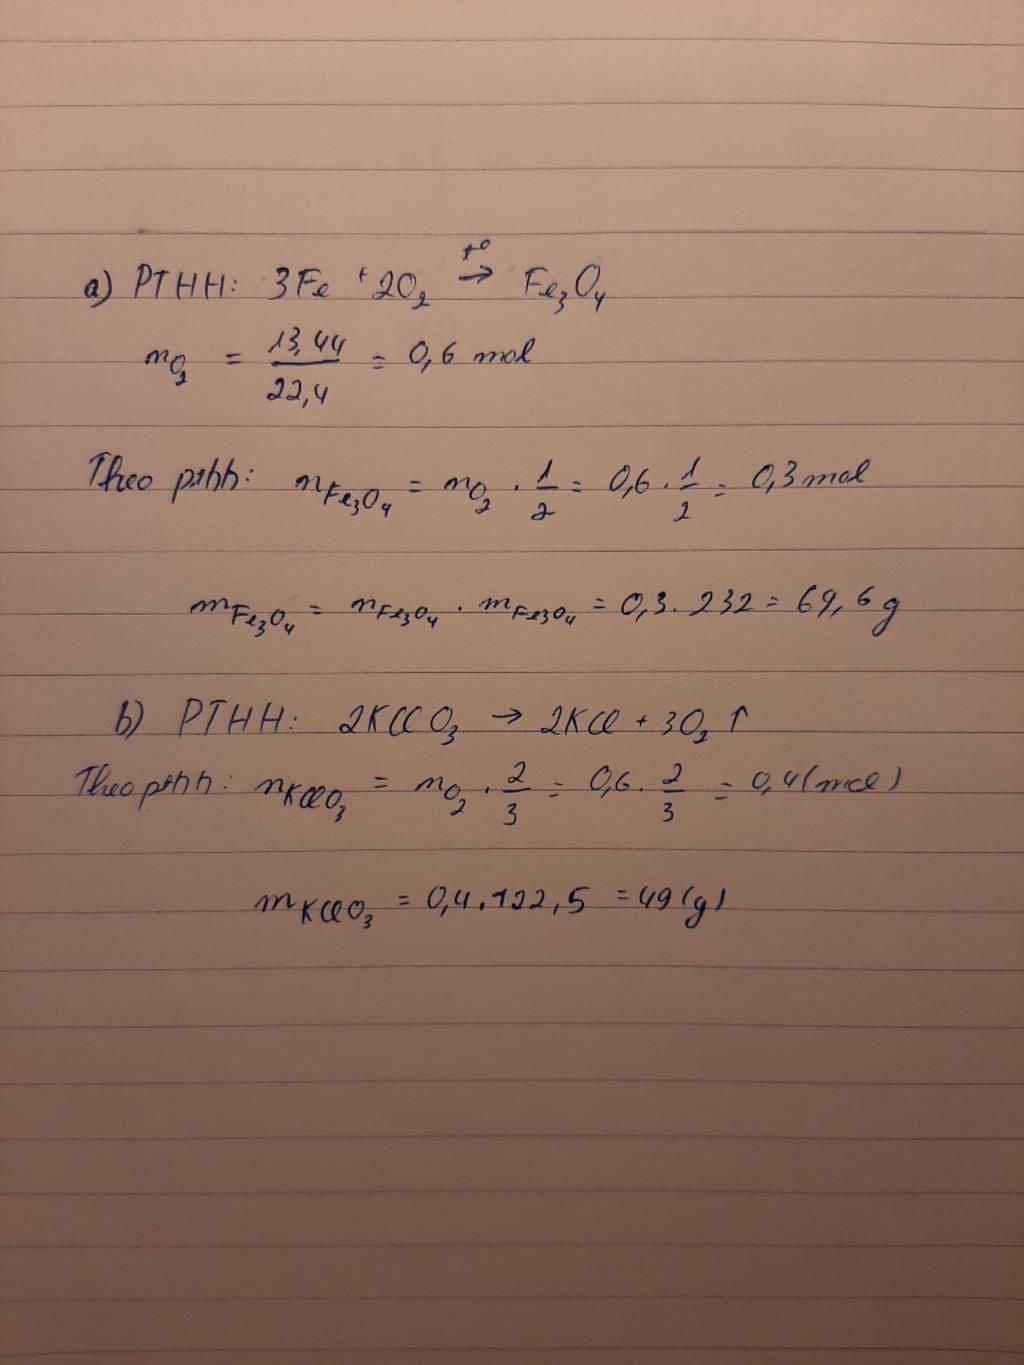 a) PTHH: 3Fe + 2O₂ →(t⁰) Fe₃O₄
nO₂ = 13,44/22,4 = 0,6 mol
Theo pthh: nFe₃O₄ = nO₂ . 1/2 = 0,6 . 1/2 = 0,3 mol
mFe₃O₄ = nFe₃O₄ . mFe₃O₄ = 0,3 . 232 = 69,6 g
b) PTHH: 2KClO₃ → 2KCl + 3O₂ ↑
Theo pthh: nKClO₃ = nO₂ . 2/3 = 0,6 . 2/3 = 0,4 (mol)
mKClO₃ = 0,4 . 122,5 = 49 (g)